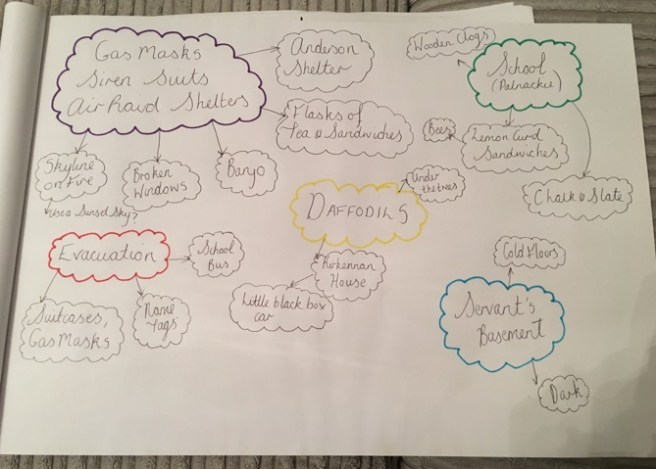 Gas Masks
Siren Suits
Air Raid Shelters
Anderson
Shelter
Flasks of
Tea & Sandwiches
Skyline
on Fire
Use a Sunset Sky?
Broken
Windows
Banjo
Wooden Clogs
School
(Palnackie)
Bees
Lemon Curd
Sandwiches
Chalk & Slate
DAFFODILS
Under
the trees
Kirkennan
House
Little black box
car
Evacuation
School
Bus
Suitcases,
Gas Masks
Name
Tags
Cold Floors
Servant's
Basement
Dark